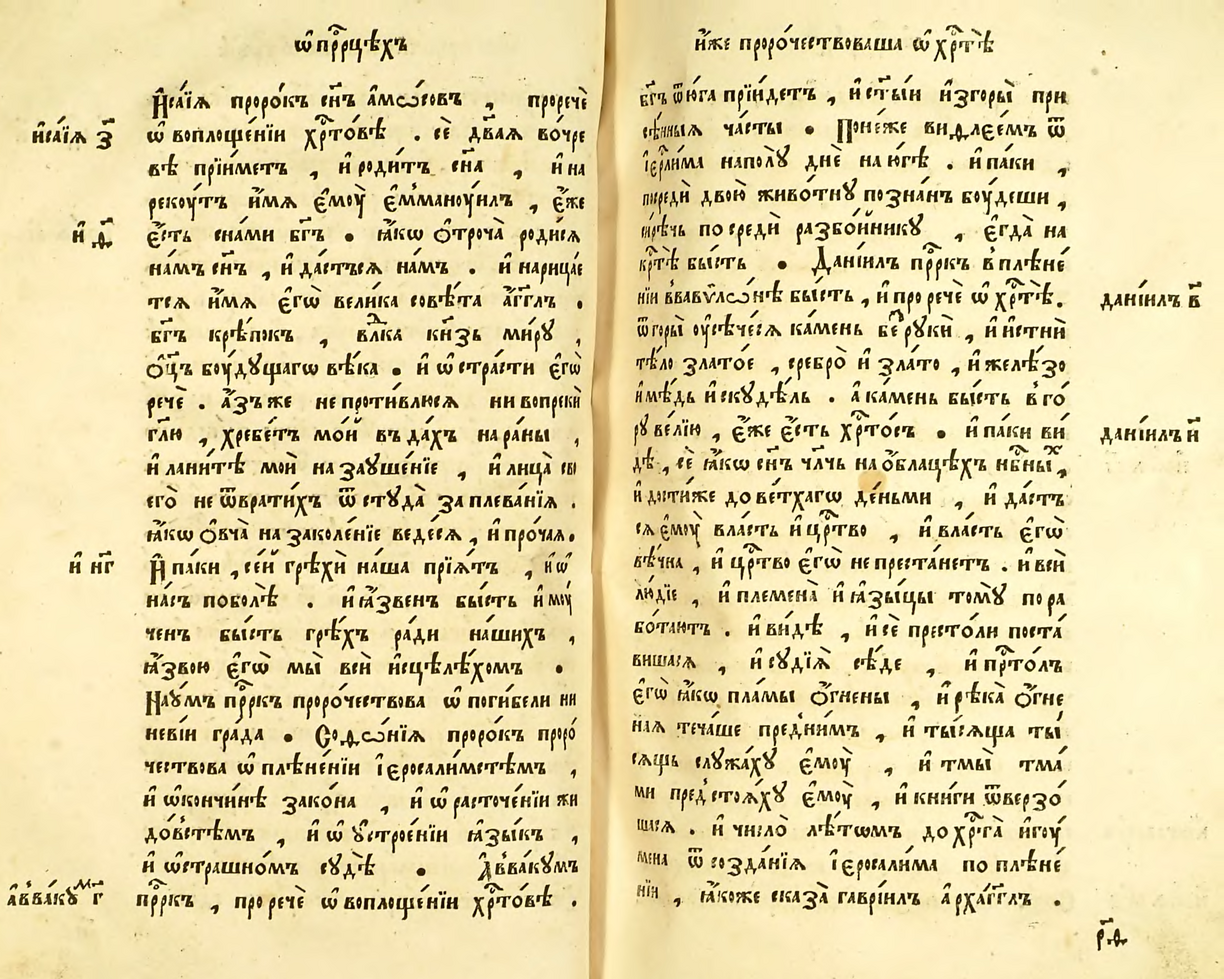 ѡ҆ прⷪ҇рцѣхъ
И҆са́їѧ проро́къ сн҃ъ а҆мѡ́совъ , проречѐ
и҆са́їѧ з҃
ѡ҆ воплоще́нїи хрⷭ҇то́вѣ . сѐ дв҃аѧ во чре
вѣ прїи́метъ , и҆ роди́тъ сн҃а , и҆ на
рекꙋ́тъ и҆́мѧ є҆мꙋ̀ є҆ммано́уилъ , є҆́же
и҆ ѳ҃
є҆́сть снами бг҃ъ . ꙗ҆́кѡ ѻ҆троча̀ роди́сѧ
на́мъ сн҃ъ , и҆ да́стъсѧ на́мъ . и҆ нарица́е
тсѧ и҆́мѧ є҆гѡ̀ вели́ка совѣ́та а҆́гг҃лъ .
бг҃ъ крѣ́покъ , влⷣка кн҃зь ми́рꙋ ,
ѻ҆ц҃ъ бꙋ́дꙋщагѡ вѣ́ка . и҆ ѡ҆ стра́сти є҆гѡ̀
речѐ . а҆́зъ же не проти́влюсѧ ни вопрекѝ
гл҃ю , хребе́тъ мо́й въ да́хъ на ра́ны ,
и҆ лани́тѣ мои̑ на заꙋше́нїе , и҆ лица̀ сво
его̀ не ѿврати́хъ ѿ стꙋда̀ заплева́нїѧ .
ꙗ҆́кѡ ѻ҆вча̀ на заколе́нїе веде́сѧ , и҆ про́чаѧ .
и҆ нг҃
И҆ па́ки , се́й грѣхѝ на́ша прїѧ́тъ , и҆ ѡ҆
на́съ поболѣ̀ . и҆ ꙗ҆́звенъ бы́сть и҆ мꙋ́
ченъ бы́сть грѣ́хъ ра́ди на́шихъ ,
ꙗ҆́звою є҆гѡ̀ мы̀ всѝ и҆сцѣлѣ́хомъ .
Наꙋ́мъ прⷪ҇ркъ проро́чествова ѡ҆ поги́бели ни
неві́и гра́да . Софѡ́нїѧ проро́къ проро́
чествова ѡ҆ плѣне́нїи і҆еросали́мстѣмъ ,
и҆ ѡ҆кончи́нѣ зако́на , и҆ ѡ҆ расточе́нїи жи
до́встѣмъ , и҆ ѡ҆ ꙋ҆строе́нїи ꙗ҆зы́къ ,
и҆ ѡ҆стра́шномъ сꙋдѣ̀ . А҆ввакꙋ́мъ
а҆вва́кꙋⷨ г҃
прⷪ҇ркъ , проречѐ ѡ҆ воплоще́нїи хрⷭ҇то́вѣ .
и҆́же проро́чествоваша ѡ҆ хрⷭ҇тѣ̀
бг҃ъ ѿ ю́га прїи́детъ , и҆ ст҃ы́й и҆згоры̀ при
сѣ́нныѧ ча́сты . Поне́же ви́флеемъ ѿ
і҆ерⷭ҇ли́ма напо́лꙋ днѐ на ю́гѣ . и҆ па́ки ,
посредѝ двою̀ живо́тнꙋ позна́нъ бꙋ́деши ,
си́рѣчь посредѝ разбо́йникꙋ , є҆гда̀ на
крⷭ҇тѣ̀ бы́сть . Данїи́лъ прⷪ҇ркъ в плѣне́
нїи в вавѷлѡ́нѣ бы́сть , и҆ проречѐ ѡ҆ хрⷭ҇тѣ̀ .
данїи́лъ в҃
ѿ горы̀ ᲂу҆сѣче́сѧ ка́мень беⷥ рꙋкѝ , и҆ и҆стнѝ
тѣ́ло злато́е , сребро̀ и҆ зла́то , и҆ желѣ́зо
и҆ мѣ́дь и҆ скꙋдѣ́ль . а҆ ка́мень бы́сть в го́
рꙋ ве́лїю , є҆́же є҆́сть хрⷭ҇то́съ . и҆ па́ки ви́
данїи́лъ и҃
дѣ , сѐ ꙗ҆́кѡ сн҃ъ чл҃чь на ѻ҆́блацѣхъ нб҃ныⷯ ,
и҆ дости́же до ве́тхагѡ де́ньми , и҆ да́стъ
сѧ є҆мꙋ̀ вла́сть и҆ црⷭ҇тво , и҆ вла́сть є҆гѡ̀
вѣ́чна , и҆ црⷭ҇тво є҆гѡ̀ не преста́нетъ . и҆ всѝ
лю́дїе , и҆ племена̀ и҆ ꙗ҆зы́цы томꙋ̀ пора
бо́таютъ . и҆ ви́дѣ , и҆ сѐ престо́ли поста́
вишасѧ , и҆ сꙋдїѧ̀ сѣ́де , и҆ прⷭ҇то́лъ
є҆гѡ̀ ꙗ҆́кѡ пла́мы ѻ҆́гнены , и҆ рѣка̀ ѻ҆́гне
наѧ течаше пред́нимъ , и҆ ты́сѧща ты́
сѧщь слꙋжа́хꙋ є҆мꙋ̀ , и҆ тмы̀ тма́
ми пред́стоѧ́хꙋ є҆мꙋ̀ , и҆ кни́ги ѿверзо́
шасѧ . и҆ число̀ лѣ́тѡмъ до хрⷭ҇та̀ и҆гꙋ́
мена ѿ созда́нїѧ і҆еросали́ма по плѣне́
нїи , ꙗ҆́коже сказа̀ гаврїи́лъ а҆рха́гг҃лъ .
рѳ҃